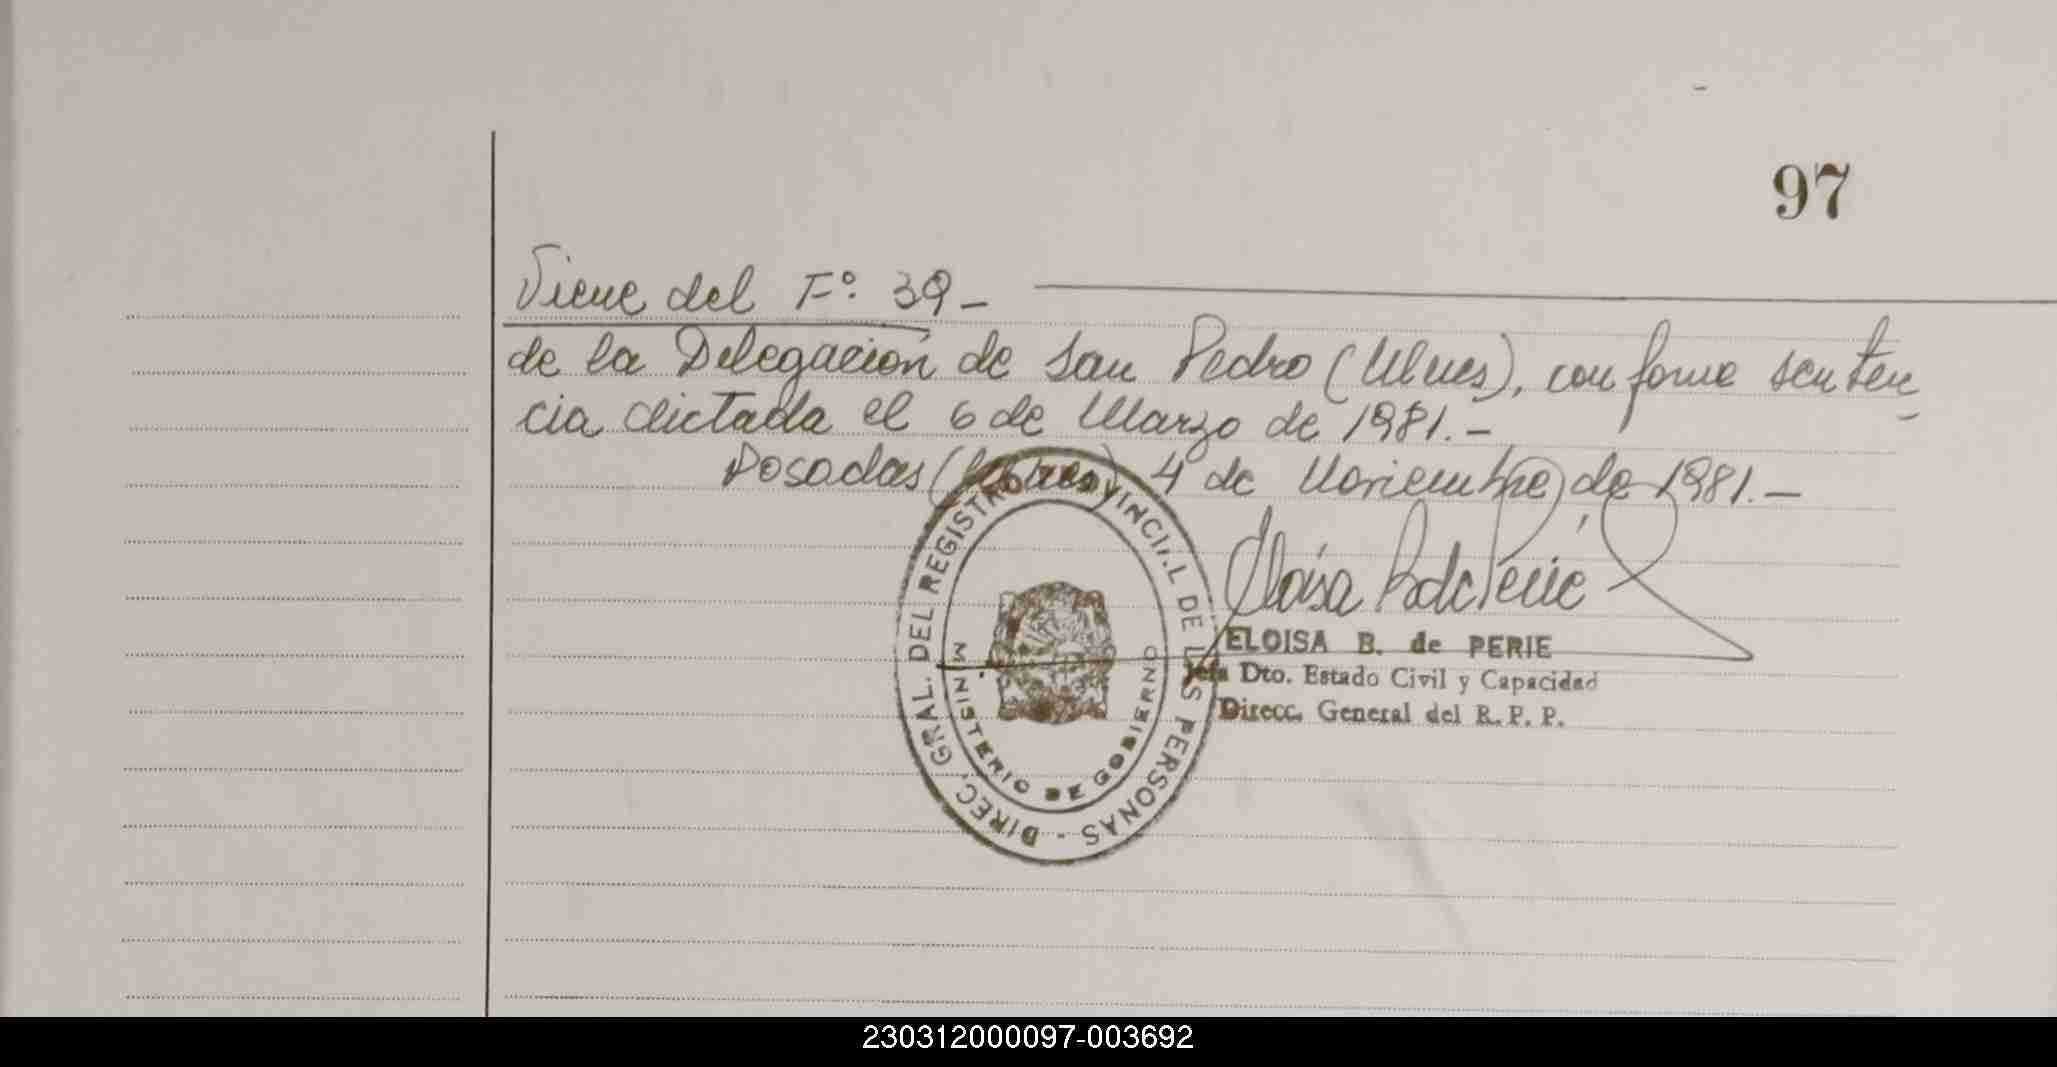 97
Viene del Fº. 39-
de la Delegación de San Pedro (Mnes), conforme senten
cia dictada el 6 de Marzo de 1981.-
Posadas (Mnes) 4 de Noviembre, de 1981.-
DIREC. GRAL. DEL REGISTRO PROVINCIAL DE LAS PERSONAS -
MINISTERIO DE GOBIERNO
ELOISA B. de PERIE
Jefa Dto. Estado Civil y Capacidad
Direcc. General del R. P. P.
230312000097-003692